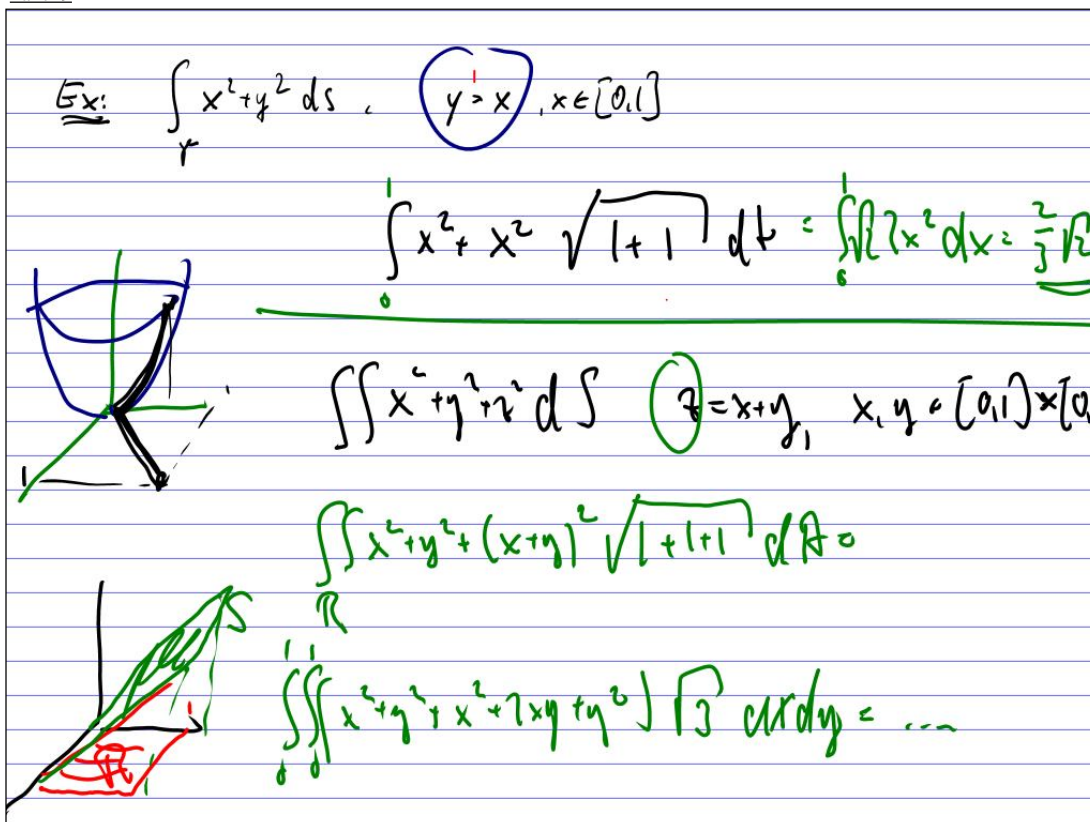 Ex: ∫_γ x²+y² ds, y=x, x∈[0,1]
∫₀¹ x²+x² √(1+1) dt = ∫₀¹ √2 2x² dx = 2/3 √2
∬ x²+y²+z² dS z=x+y, x,y ∈ [0,1]×[0,
∬_R x²+y²+(x+y)² √(1+1+1) dA =
S
∫₀¹∫₀¹ [x²+y²+x²+2xy+y²] √3 dxdy = ...
R